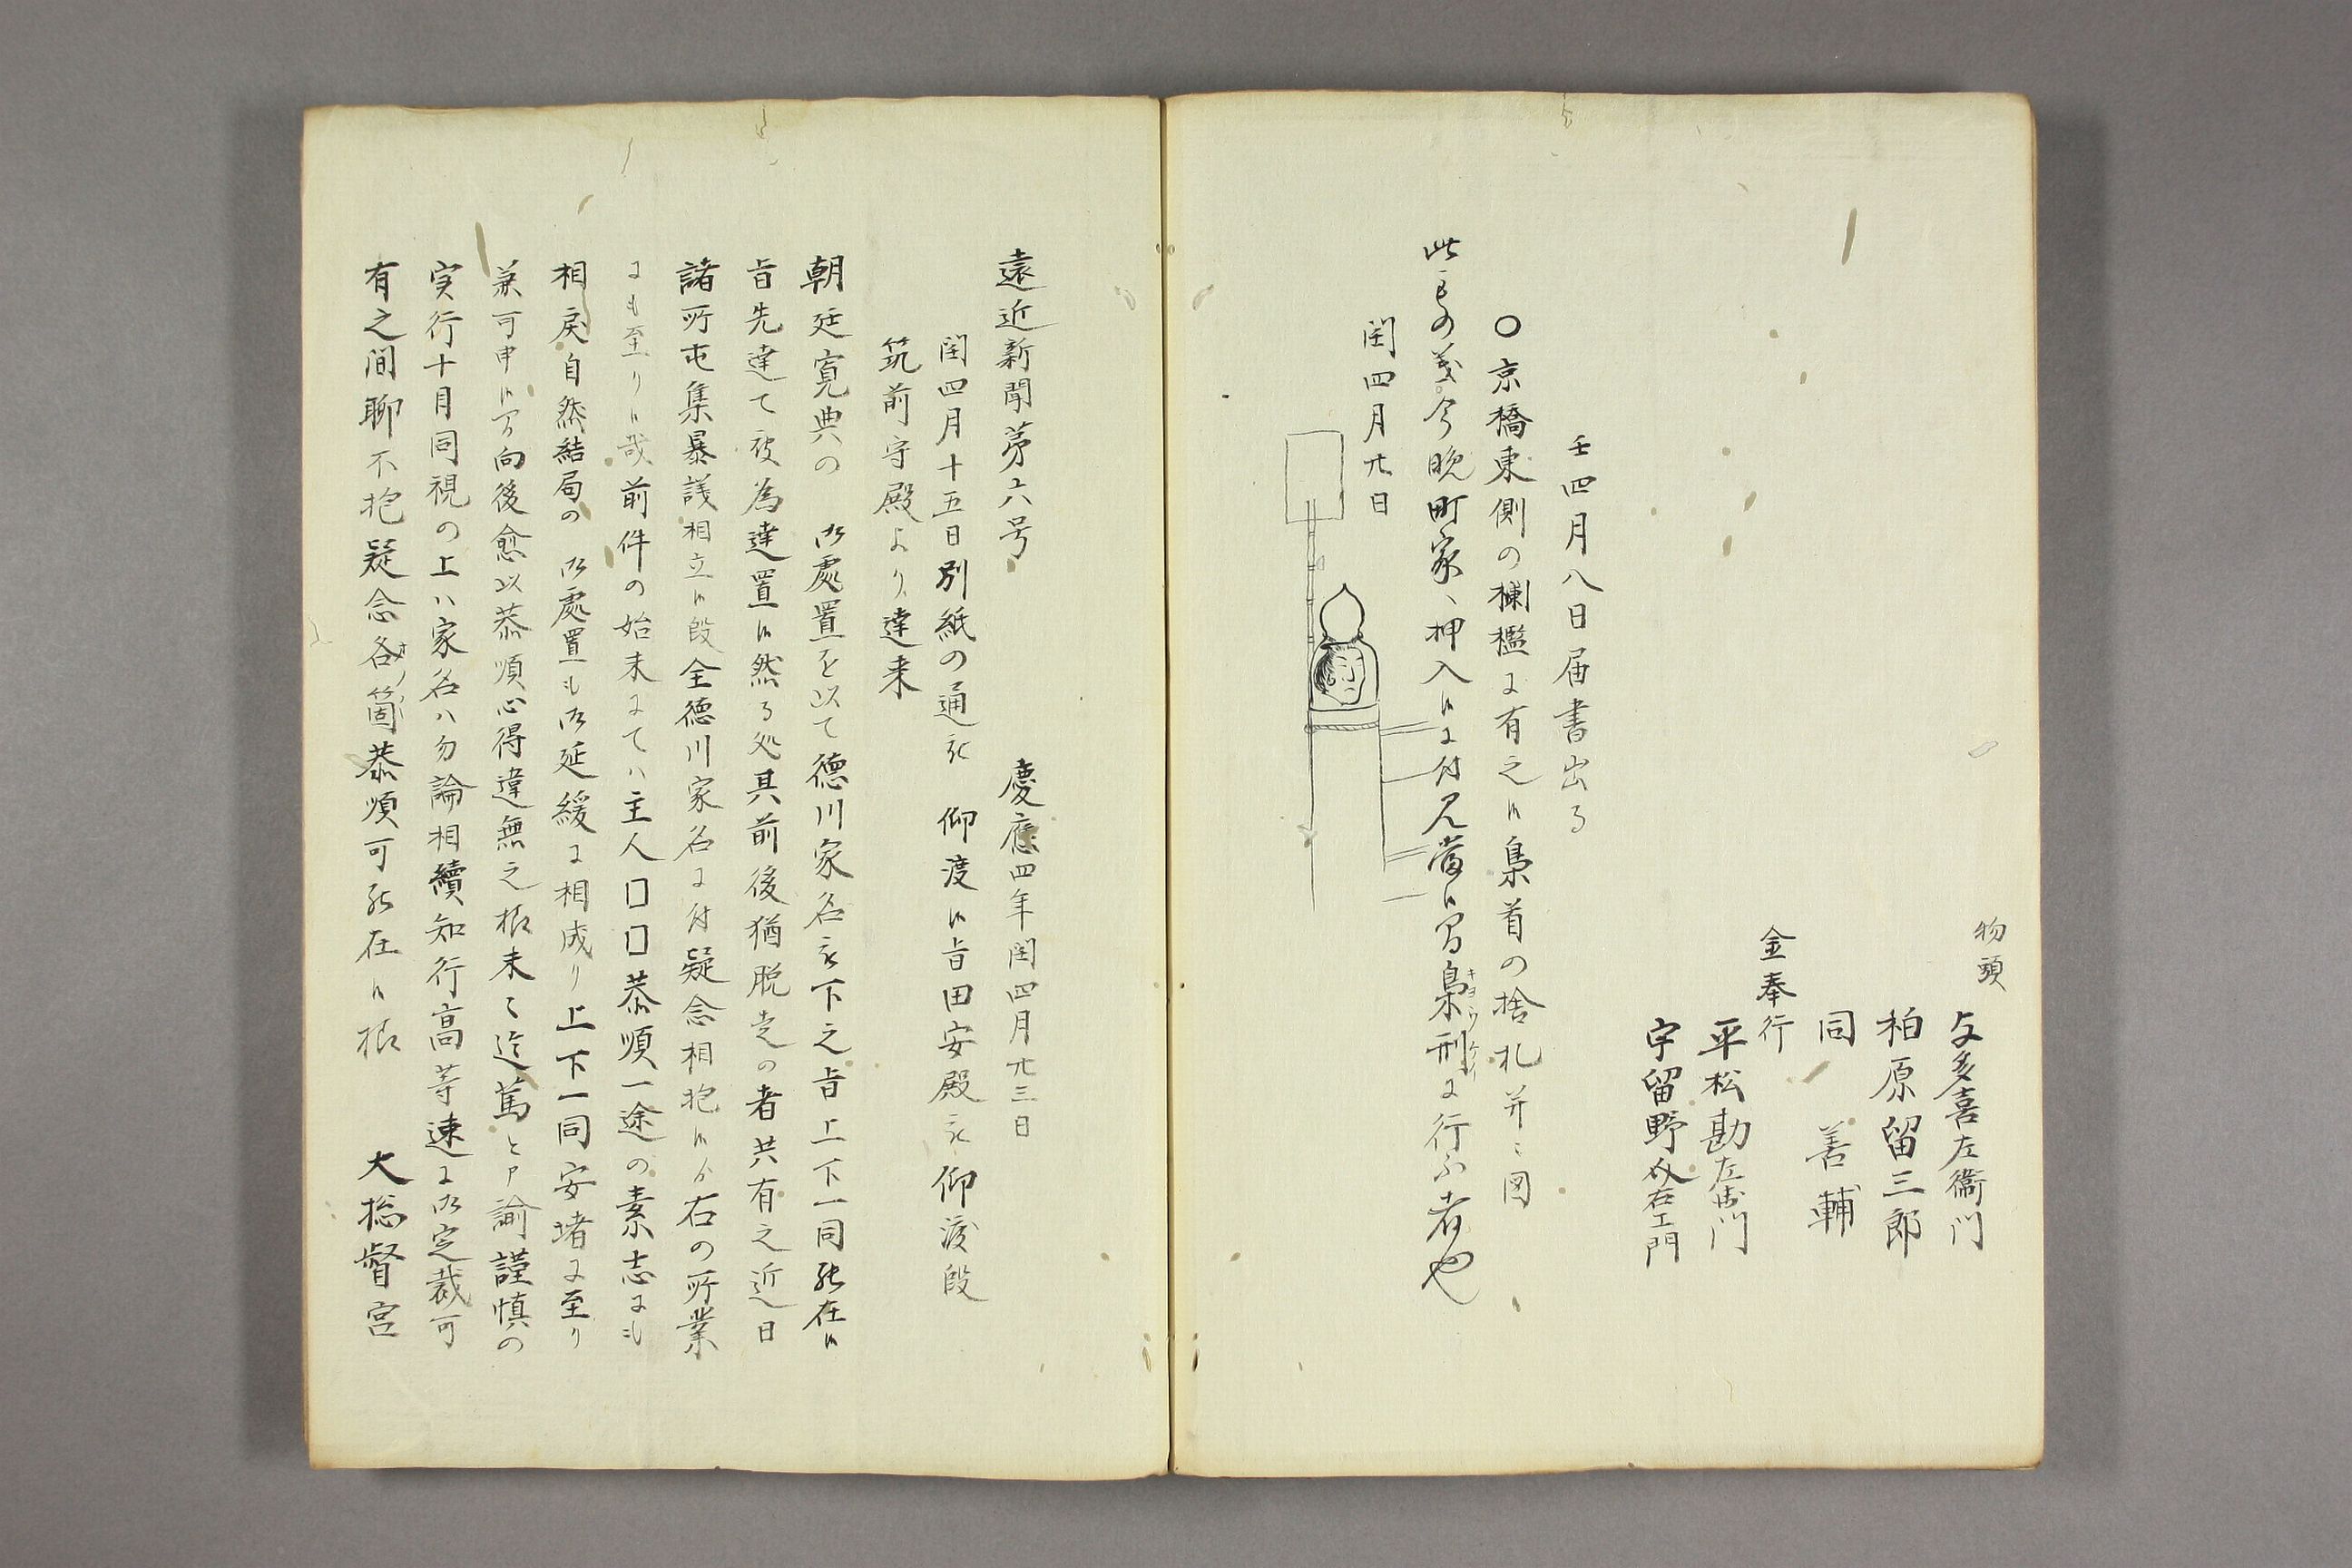 物頭
与多喜左衛门
柏原留三郎
同　善輔
金奉行
平松勘左衛门
宇留野　右エ門
壬四月八日届書出る
○京橋東側の欄檻に有之候梟首の捨札并ニ図
此もの義今晩町家へ押入候に付見當候間梟刑に行ふ者也
キヨウケイ
閏四月廿日
遠近新聞第六号　慶應四年閏四月廿三日
閏四月十五日別紙の通被　仰渡候旨田安殿被仰渡段
筑前守殿より達来
朝廷寛典の　御處置を以て徳川家名被下之旨上下一同罷在候
旨先達て被為達置候然る処其前後猶脱走の者共有之近日
諸所屯集暴議相立候段全徳川家名に付疑念相抱候か右の所業
にも至り候哉前件の始末にては主人口口恭順一途の素志にも
相戻自然結局の　御處置も御延緩に相成り上下一同安堵に至り
兼可申候間向後愈以恭順心得違無之様末々迄篤と申諭謹慎の
実行十月同視の上ハ家名ハ勿論相續知行高等速に御定裁可
有之間聊不抱疑念各箇恭順可罷在候様　大総督宮